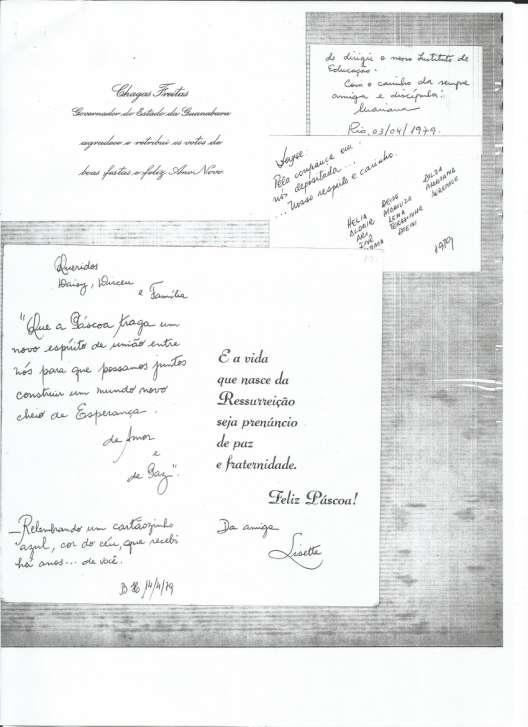 Chagas Freitas
Governador do Estado da Guanabara
agradece e retribui os votos de
boas festas e feliz Ano Novo
de dirigir o nosso Instituto de
Educação.
Com o carinho da sempre
amiga e discípula:
Mariana
Rio, 03/04/1979.
Pela confiança em
nós depositada...
... Nosso respeito e carinho.
HELIA
DEISE
DILZA
MARIANA
LENA
TEREZINHA
1979
Queridos
Daisy, Dirceu
e Família
"Que a Páscoa traga um
novo espírito de união entre
nós para que possamos juntos
construir um mundo novo
cheio de Esperança.
de Amor
e
de Paz".
E a vida
que nasce da
Ressurreição
seja prenúncio
de paz
e fraternidade.
Feliz Páscoa!
_Relembrando um cartãozinho
azul, cor do céu, que recebi
há anos... de você.
Da amiga
Lisette
14/4/79